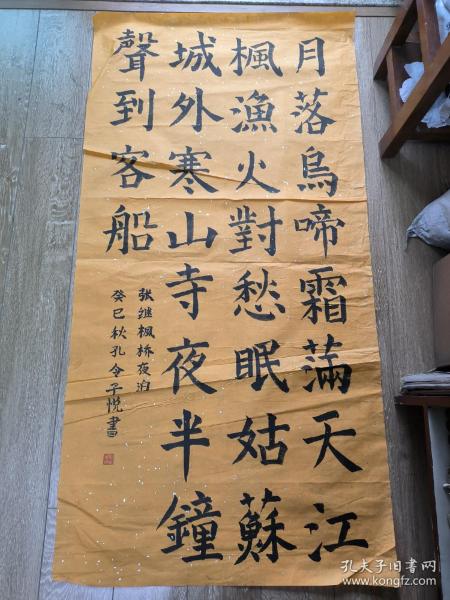 月落烏啼霜滿天江
楓漁火對愁眠姑蘇
城外寒山寺夜半鐘
聲到客船
张继楓桥夜泊
癸巳秋孔令子悦書
孔夫子旧书网
www.kongfz.com